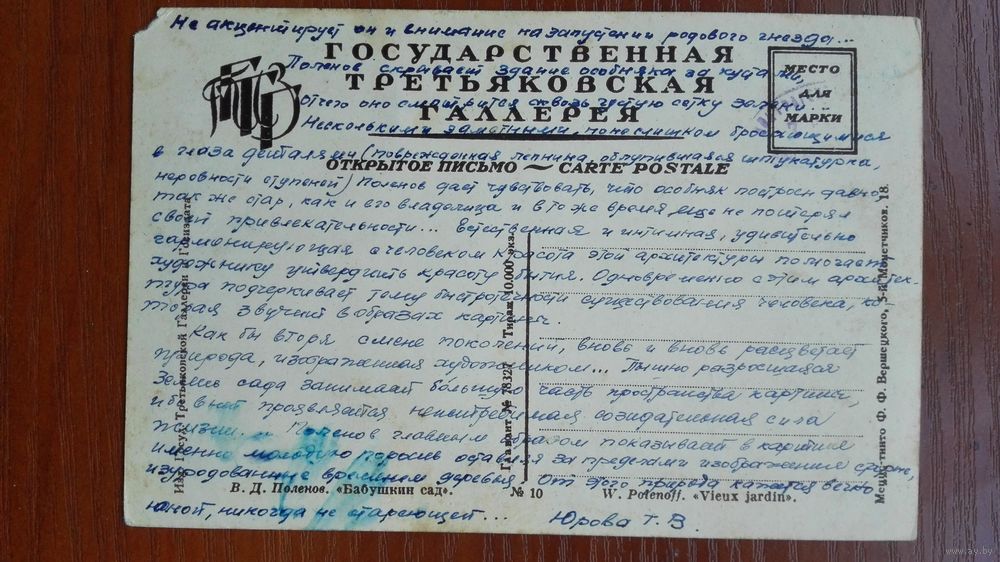 Не акцентирует он и внимание на запустении родового гнезда...
ГОСУДАРСТВЕННАЯ
Поленов скрывает здание особняка за кустами,
ТРЕТЬЯКОВСКАЯ
отчего оно смотрится сквозь густую сетку зелени.
ГАЛЛЕРЕЯ
МЕСТО
ДЛЯ
МАРКИ
Несколькими заметными, но не слишком бросающимися
в глаза деталями (поврежденная лепнина, облупившаяся штукатурка,
ОТКРЫТОЕ ПИСЬМО — CARTE POSTALE
неровности ступеней) Поленов дает чувствовать, что особняк построен давно,
так же стар, как и его владелица и в то же время еще не потерял
своей привлекательности... Естественная и интимная, удивительно
гармонирующая с человеком красота этой архитектуры помогает
художнику утвердить красоту бытия. Одновременно с этим архитек-
тура подчеркивает тему быстротечности существования человека, ко-
торая звучит в образах картины.
Как бы вторя смене поколений, вновь и вновь расцветает
природа, изображенная художником... Пышно разросшаяся
зелень сада занимает большую часть пространства картины,
и в ней проявляется неистребимая созидательная сила
жизни... Поленов главным образом показывает в картине
именно молодую поросль оставляя за пределами изображения
изуродованные временем деревья. От этого природа кажется вечно
В. Д. Поленов. «Бабушкин сад». № 10 W. Polenoff. «Vieux jardin».
юной, никогда не стареющей... Юрова Т. В.
Изд. Госуд. Третьяковской Галлереи и Госиздата
Главлит № 78327 Тираж 10.000 экз.
Меццотинто Ф. Ф. Вершецкого, 3-й Монетчиков, 18.
www.ay.by